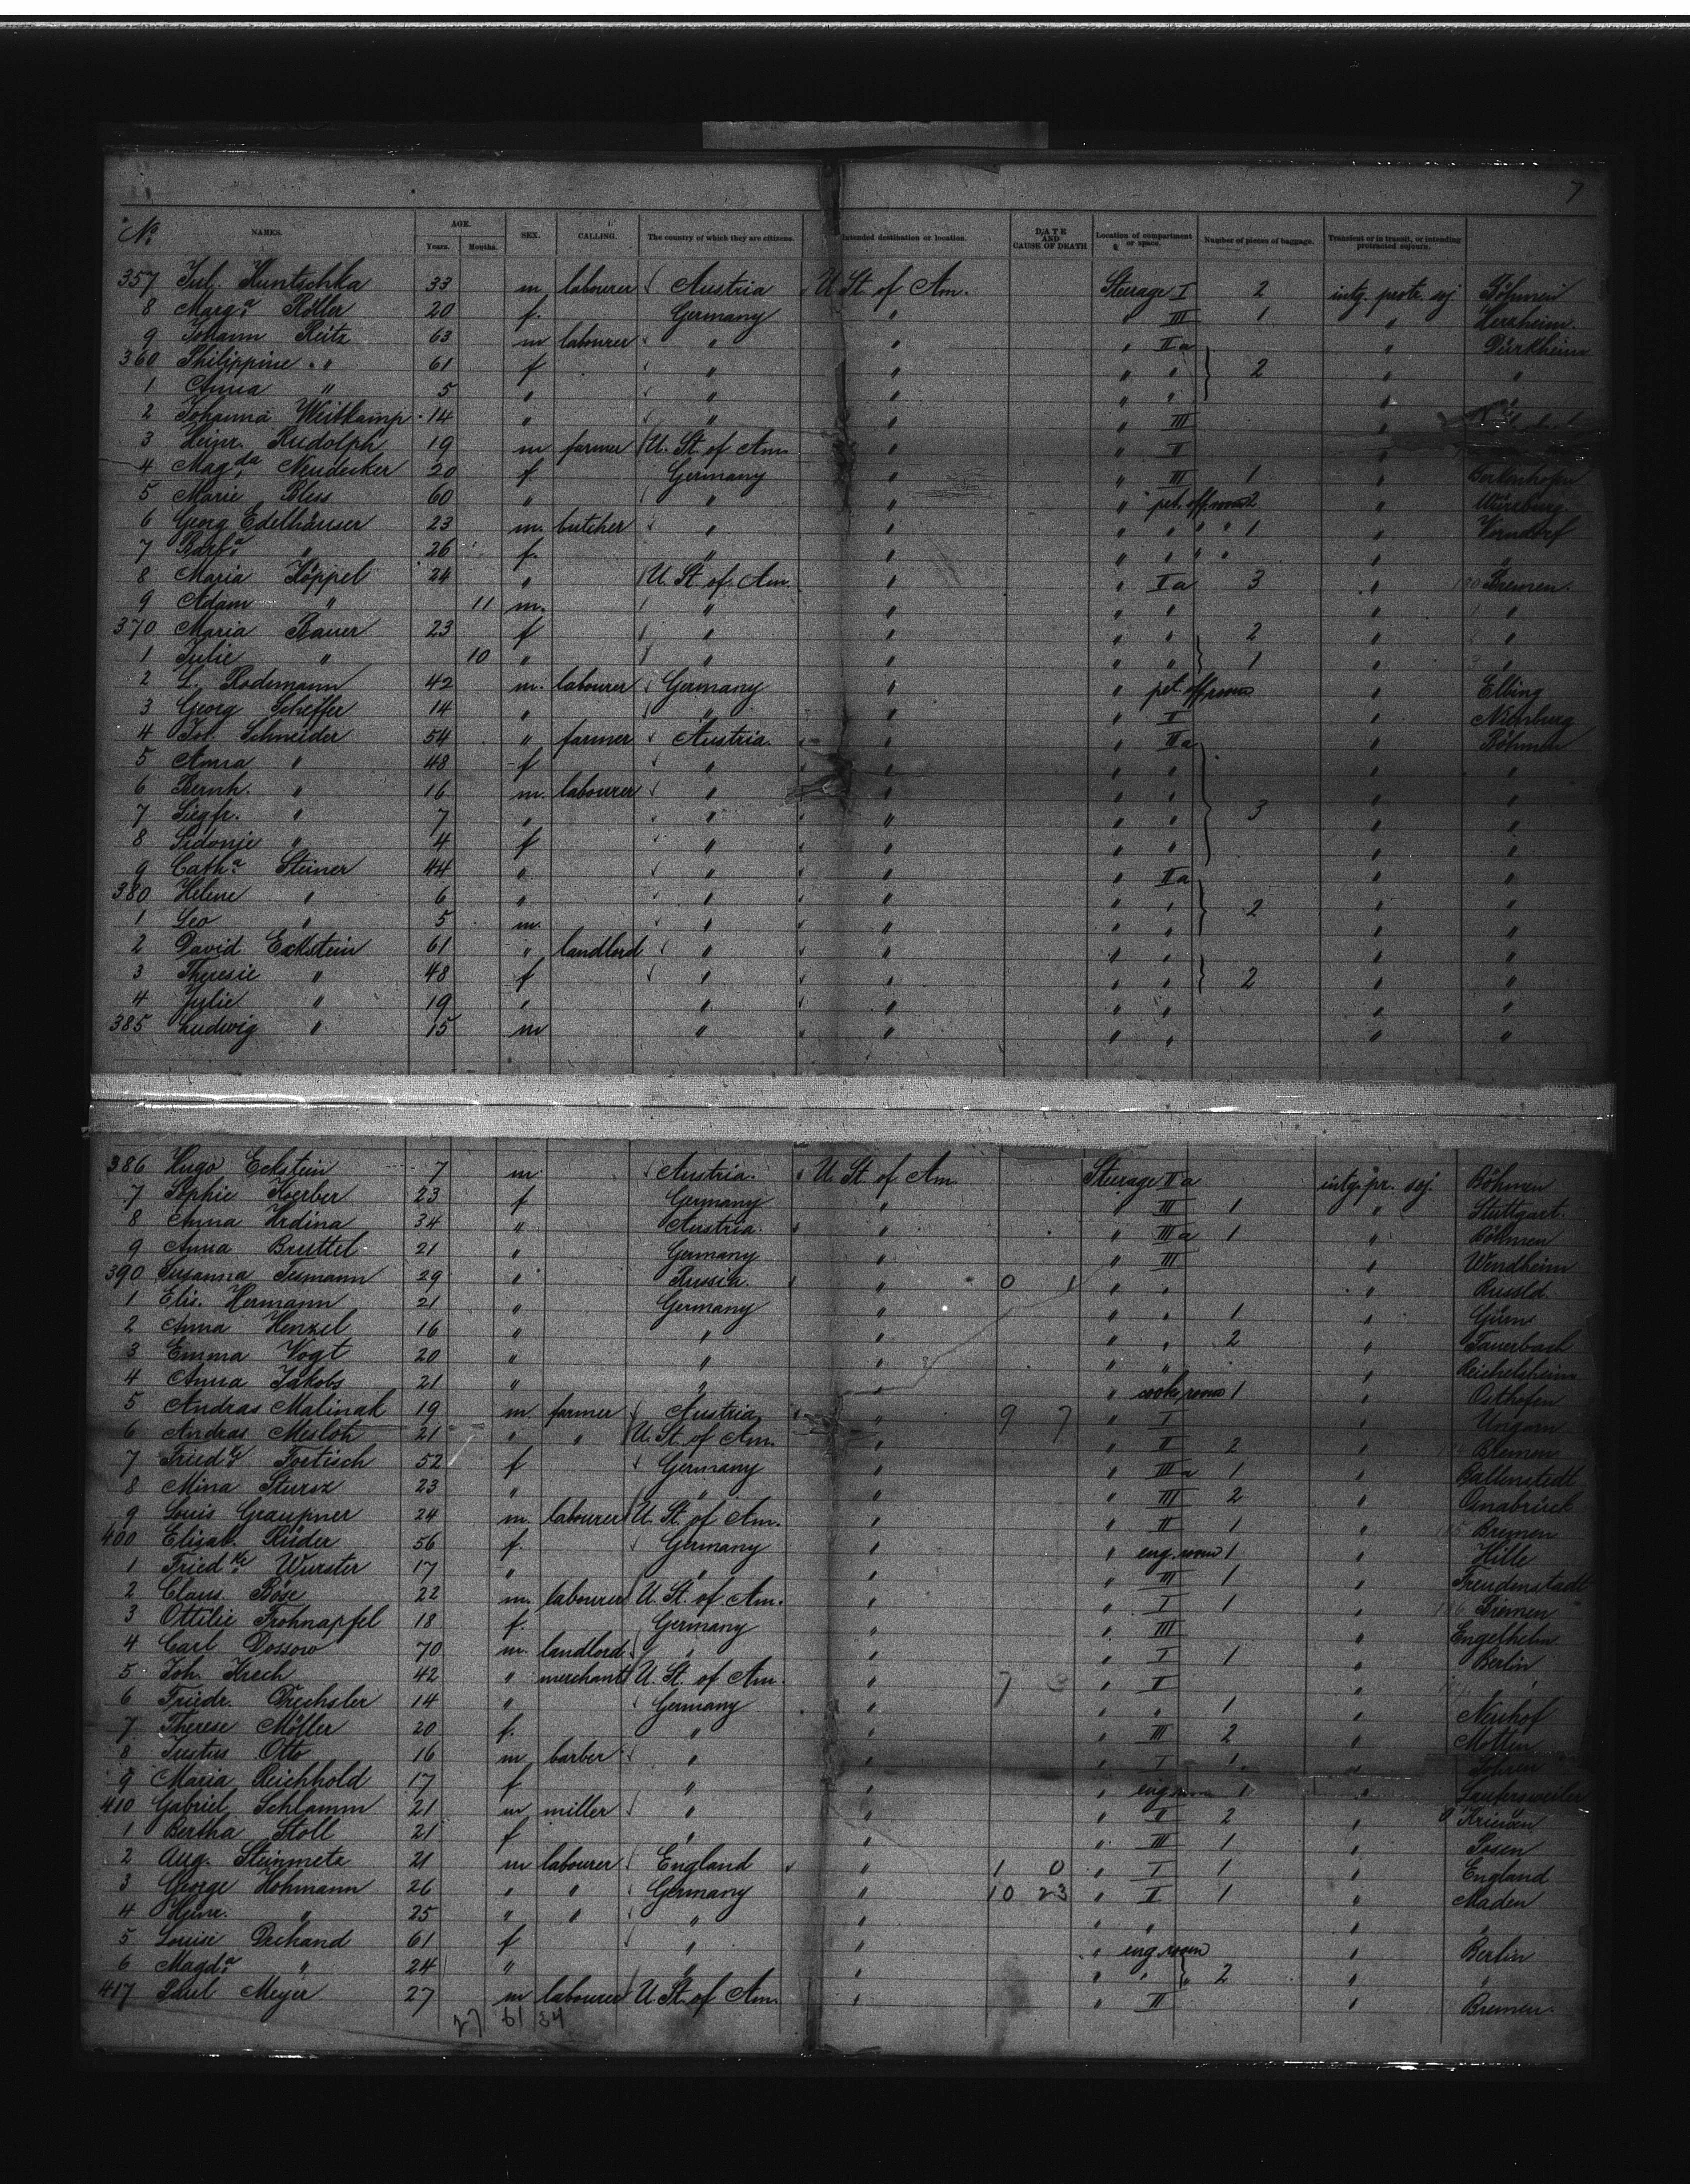 7
No. NAMES. AGE. Years. Months. SEX. CALLING. The country of which they are citizens. Intended destination or location. DATE AND CAUSE OF DEATH Location of compartment or space. Number of pieces of baggage. Transient or in transit, or intending protracted sojourn.
357 Jul. Kuntschka 33 m labourer Austria U. St. of Am. Steerage I 2 intg. protr. soj Böhmen
8 Marg.a Köller 20 f. Germany " " III 1 " Herxheim
9 Johann Reitz 63 m labourer " " " II a " Dürkheim
360 Philippine " 61 f " " " " 2 " "
1 Anna " 5 " " " " " " "
2 Johanna Weitkamp 14 " " " " III "
3 Heinr. Rudolph 19 m farmer U. St. of Am. " " II "
4 Magda Neudecker 20 f. Germany " " III 1 "
5 Marie Bless 60 " " " " pet. off. room 2 " Würzburg
6 Georg Edelhäuser 23 m. butcher " " " " " 1 " Vorndorf
7 Barb.a " 26 f. " " " " " " "
8 Maria Köppel 24 " U. St. of Am. " " II a 3 " Bremen.
9 Adam " 11 m. " " " " " "
370 Maria Bauer 23 f " " " " 2 " "
1 Julie " 10 " " " " " 1 " "
2 L. Rodemann 42 m. labourer Germany " " pet. off room " Elbing
3 Georg Scheffer 14 " " " " II " Nienburg
4 Joh. Schneider 54 " farmer Austria. " " II a " Böhmen
5 Anna " 48 f " " " " " "
6 Bernh. " 16 m. labourer " " " " " "
7 Siegfr. " 7 " " " " " 3 " "
8 Sidonie " 4 f " " " " " "
9 Cath.a Steiner 44 " " " " II a " "
380 Helene " 6 " " " " " 2 " "
1 Leo " 5 m. " " " " " "
2 David Eckstein 61 " landlord " " " " " "
3 Theresie " 48 f " " " " 2 " "
4 Julie " 19 " " " " " " "
385 Ludwig " 15 m " " " " " "
386 Hugo Eckstein 7 m. Austria. U. St. of Am. Steerage II a intg. pr. soj. Böhmen
7 Sophie Koerber 23 f Germany " " III 1 " Stuttgart.
8 Anna Hrdina 34 " Austria. " " III a 1 " Böhmen
9 Anna Bruttel 21 " Germany " " III " Wendheim
390 Susanna Susmann 29 " Russia. " 0 1 " " " Russld.
1 Elis. Hermann 21 " Germany " " " 1 "
2 Anna Henzel 16 " " " " " 2 " Fauerbach
3 Emma Vogt 20 " " " " " " Reichelsheim
4 Anna Jakobs 21 " " " " cooks room 1 " Osthofen
5 Andras Malinak 19 m. farmer Austria " 9 7 " I " Ungarn
6 Andras Mesloh 21 " " U. St. of Am. " " II 2 " Bremen
7 Friedke Foetisch 52 f Germany " " III a 1 Ballenstedt
8 Mina Stursz 23 " " " " III 2 " Osnabrück
9 Louis Graupner 24 m. labourer U. St. of Am. " " II 1 " Bremen
400 Elisab. Rüder 56 f. Germany " " eng. room 1 " Hille
1 Friedke Wurster 17 " " " " III 1 " Freudenstadt
2 Claus Böse 22 m. labourer U. St. of Am. " " I 1 " Bremen
3 Ottilie Frohnapfel 18 f. Germany " " III " Engelhelm
4 Carl Dossow 70 m. landlord " " " I 1 " Berlin
5 Joh. Krech 42 " merchant U. St. of Am. " 7 3 " II "
6 Friedr. Drechsler 14 " Germany " " " 1 " Neuhof
7 Therese Möller 20 f. " " " III 2 " Motten
8 Justus Otto 16 m barber " " " I 1 "
9 Maria Reichhold 17 f " " " eng room 1 " Laufersweiler
410 Gabriel Schlamm 21 m miller " " " II 2 "
1 Bertha Stoll 21 f " " " III 1 " Posen
2 Aug. Steinmetz 21 m labourer England " 1 0 " I 1 " England
3 George Hohmann 26 " " Germany " 10 23 " II 1 " Maden
4 Heinr. " 25 " " " " " " " "
5 Louise Dechand 61 f " " " eng. room " Berlin
6 Magd.a " 24 " " " " " 2 " "
417 Paul Meyer 27 m labourer U. St. of Am. " " II " Bremen.
27 61 34